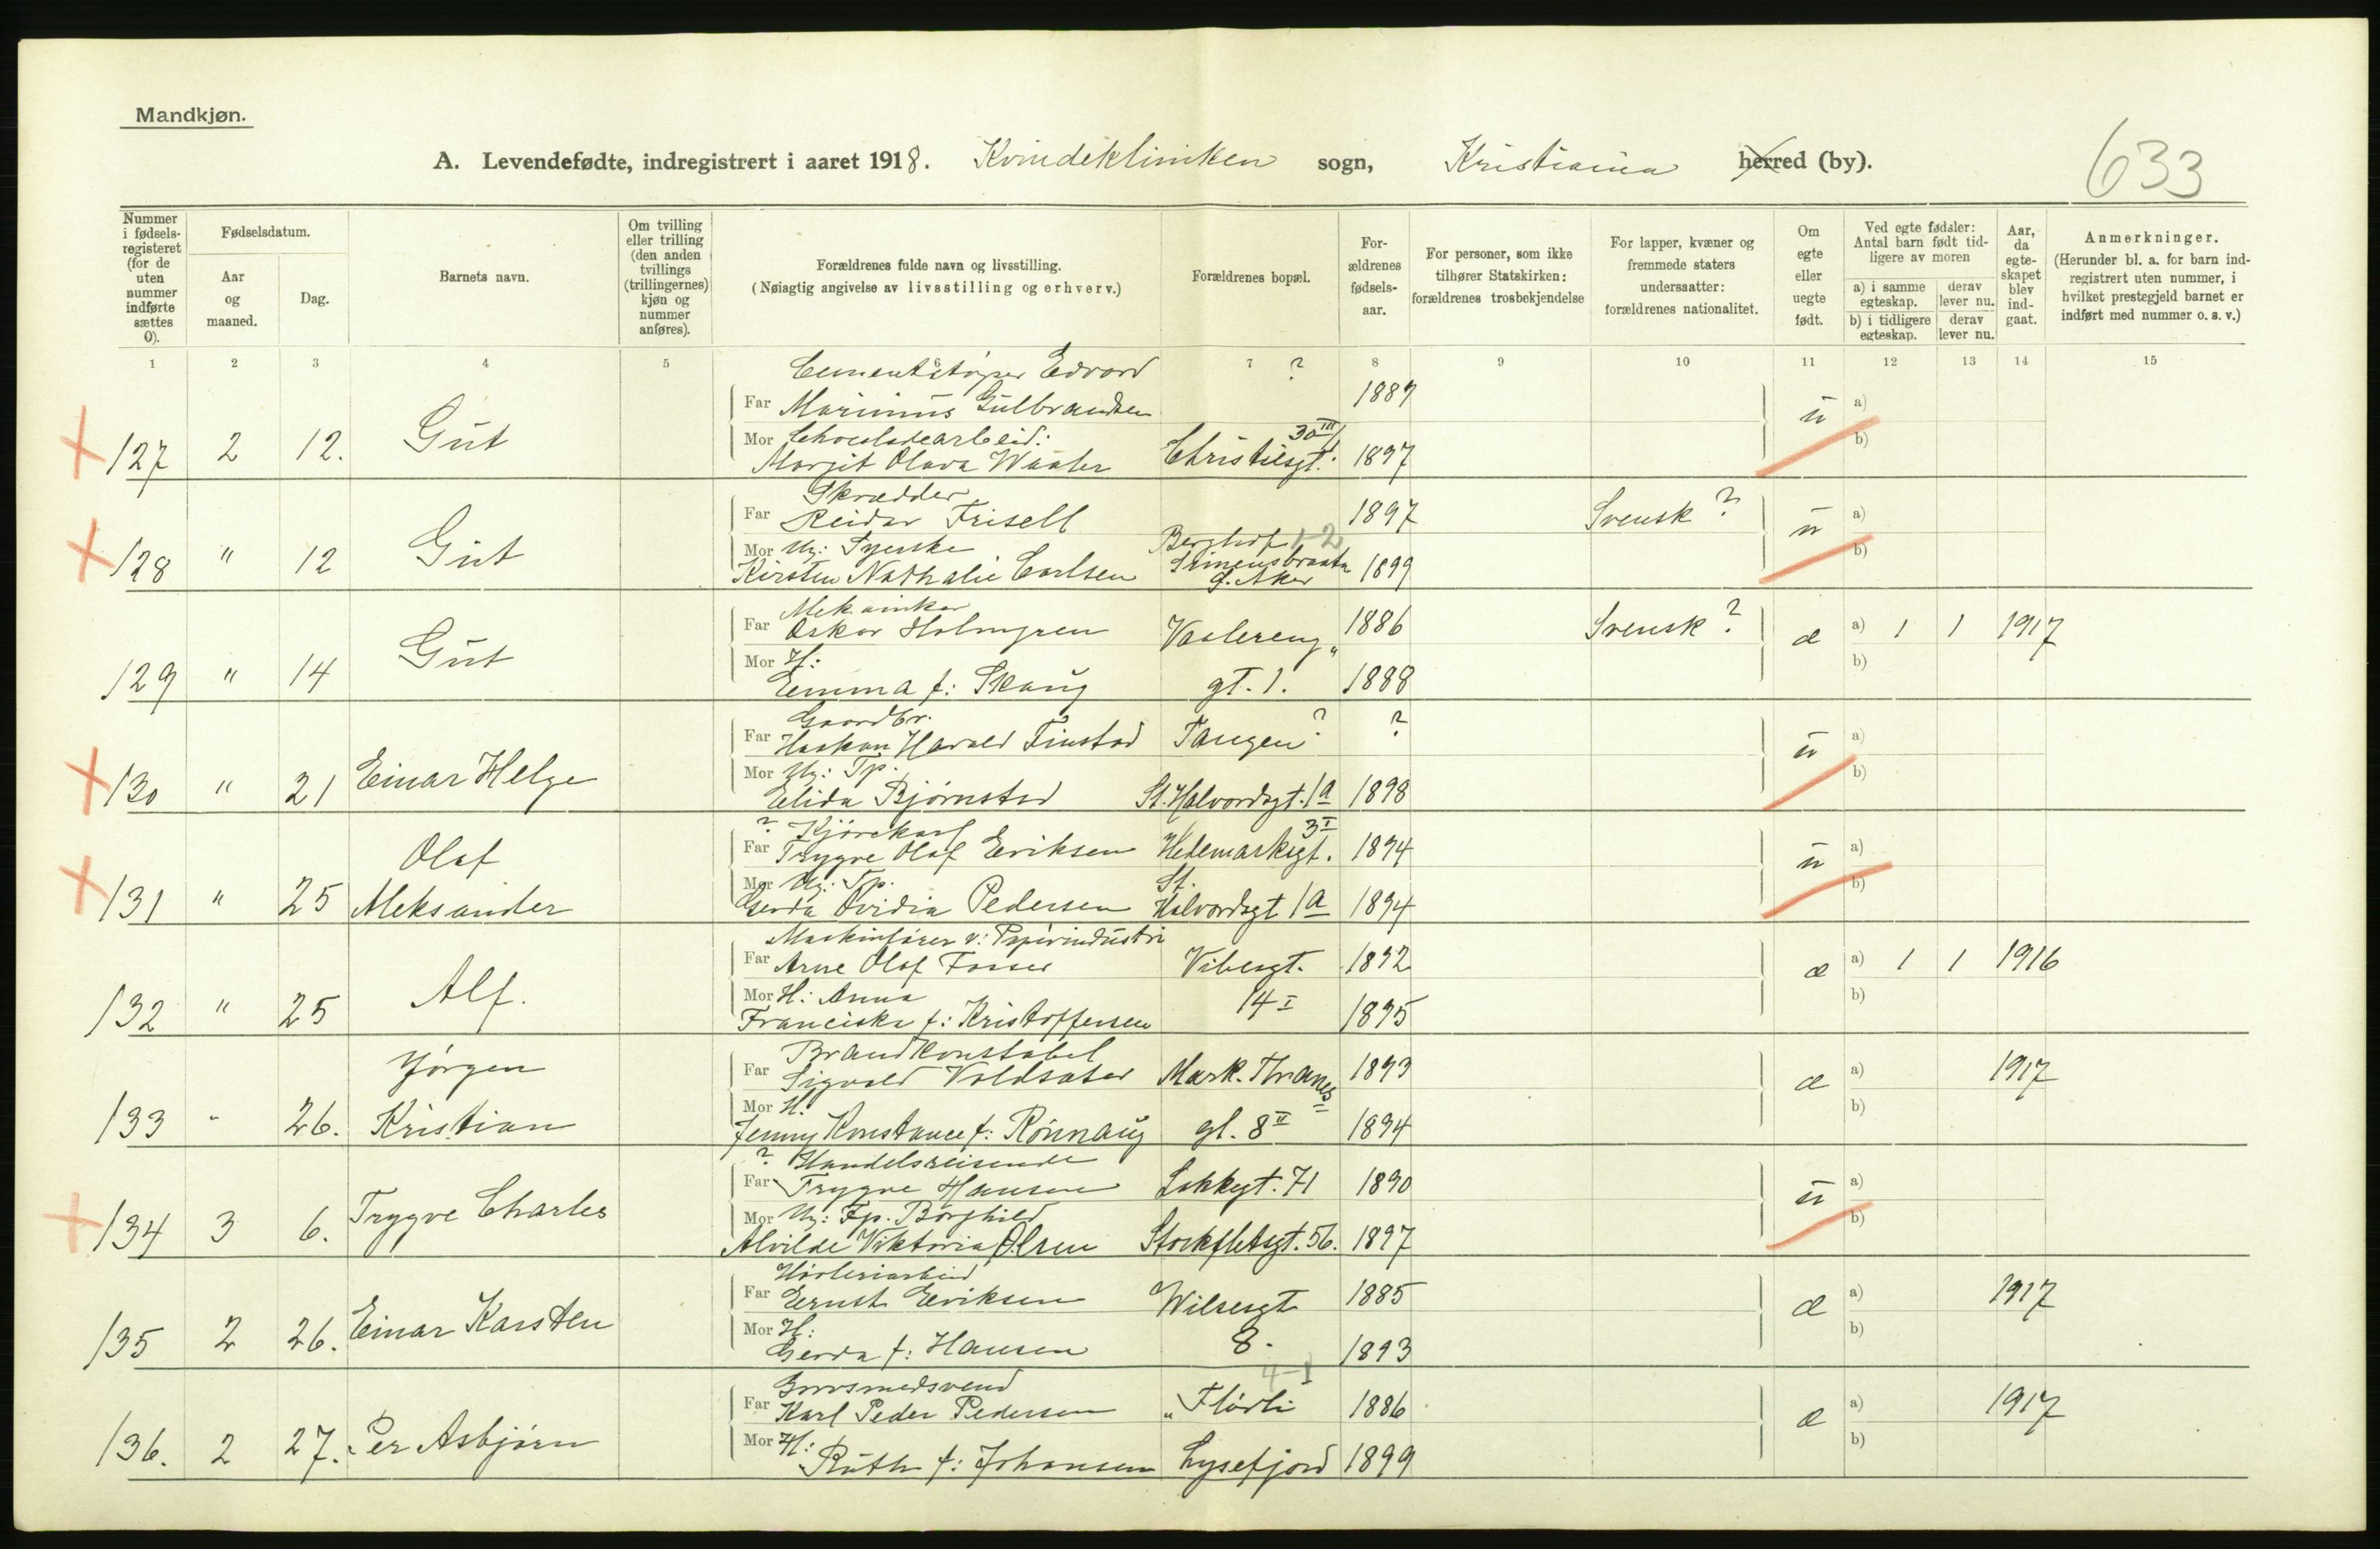 Mandkjøn.
A. Levendefødte, indregistrert i aaret 1918. Kvindeklinikken sogn, Kristiania herred (by).
633
Nummer i fødselsregisteret (for de uten nummer indførte sættes 0).
Fødselsdatum.
Aar og maaned.
Dag.
Barnets navn.
Om tvilling eller trilling (den anden tvillings (trillingernes) kjøn og nummer anføres).
Forældrenes fulde navn og livsstilling.
(Nøiagtig angivelse av livsstilling og erhverv.)
Forældrenes bopæl.
Forældrenes fødselsaar.
For personer, som ikke tilhører Statskirken: forældrenes trosbekjendelse
For lapper, kvæner og fremmede staters undersaatter: forældrenes nationalitet.
Om egte eller uegte født.
Ved egte fødsler: Antal barn født tidligere av moren
a) i samme egteskap.
derav lever nu.
b) i tidligere egteskap.
derav lever nu.
Aar, da egteskapet blev indgaat.
Anmerkninger.
(Herunder bl. a. for barn indregistrert uten nummer, i hvilket prestegjeld barnet er indført med nummer o. s. v.)
1 2 3 4 5 6 7 8 9 10 11 12 13 14 15
Cementstøper Edvard ?
Far Marinius Gulbrandsen 1887
127 2 12. Gut ü a) b)
Mor Chocoladearbeid: 30 III
Margit Olava Waaler Christiesgt. 1897
Skrædder
Far Reidar Frisell 1897 Svensk ?
128 " 12 Gut ü a) b)
Mor Ug: Syerske Berghof 1-2
Kirsten Nathalie Carlsen Simensbraata Ø. Aker 1899
Mekaniker
Far Oskar Holmgren Vaalereng 1886 Svensk ?
129 " 14 Gut æ a) 1 1 1917 b)
Mor H:
Emma f: Skaug gt. 1. 1888
Gaardbr.
Far Haakon Harald Finstad Tangen ? ?
130 " 21 Einar Helge ü a) b)
Mor Ug: Tp.
Elida Bjørnstad St. Halvordsgt. 1a 1898
? Kjørekarl 3 I
Far Trygve Olaf Eriksen Hedemarksgt. 1894
131 " 25 Olaf Aleksander ü a) b)
Mor Ug: Tp. St.
Gerda Ovidia Pedersen Halvordsgt 1a 1894
Maskinfører v: Papirindustri
Far Arne Olaf Fosser Vibesgt. 1892
132 " 25 Alf. æ a) 1 1 1916 b)
Mor H: Anna 14 I
Franciska f: Kristoffersen 1895
Brandkonstabel
Far Sigvald Voldsæter Mark. Thranes 1893
133 " 26. Jørgen Kristian æ a) 1917 b)
Mor H.
Jenny Konstance f: Rønnaug gt. 8 II 1894
? Handelsreisende
Far Trygve Hansen Lakkegt. 71 1890
134 3 6. Trygve Charles ü a) b)
Mor Ug: Fp. Borghild
Alvilde Viktoria Olsen Stockfletsgt. 56. 1897
Høvleriarbeid
Far Ernst Eriksen Wilsesgt 1885
135 2 26. Einar Karsten æ a) 1917 b)
Mor H:
Gerda f: Hansen 8. 1893
4-I
Grovsmedsvend
Far Karl Peder Pedersen "Flørli 1886
136. 2 27. Per Asbjørn æ a) 1917 b)
Mor H:
Ruth f: Johansen Lysefjord 1899